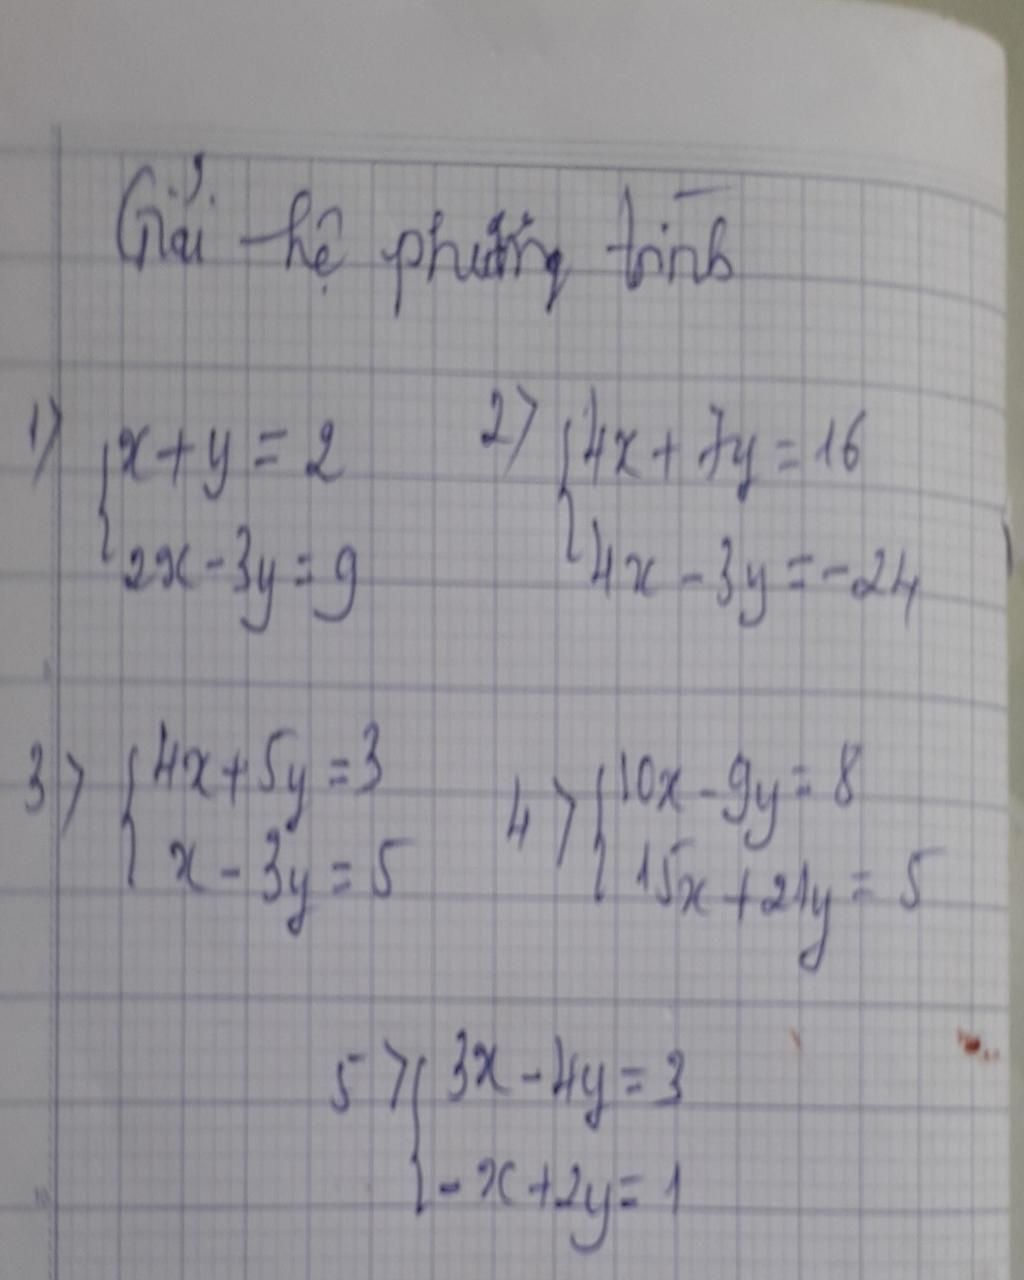 Giải hệ phương trình
1) { x + y = 2
2x - 3y = 9
2) { 4x + 7y = 16
4x - 3y = -24
3) { 4x + 5y = 3
x - 3y = 5
4) { 10x - 9y = 8
15x + 21y = 5
5) { 3x - 4y = 3
- x + 2y = 1